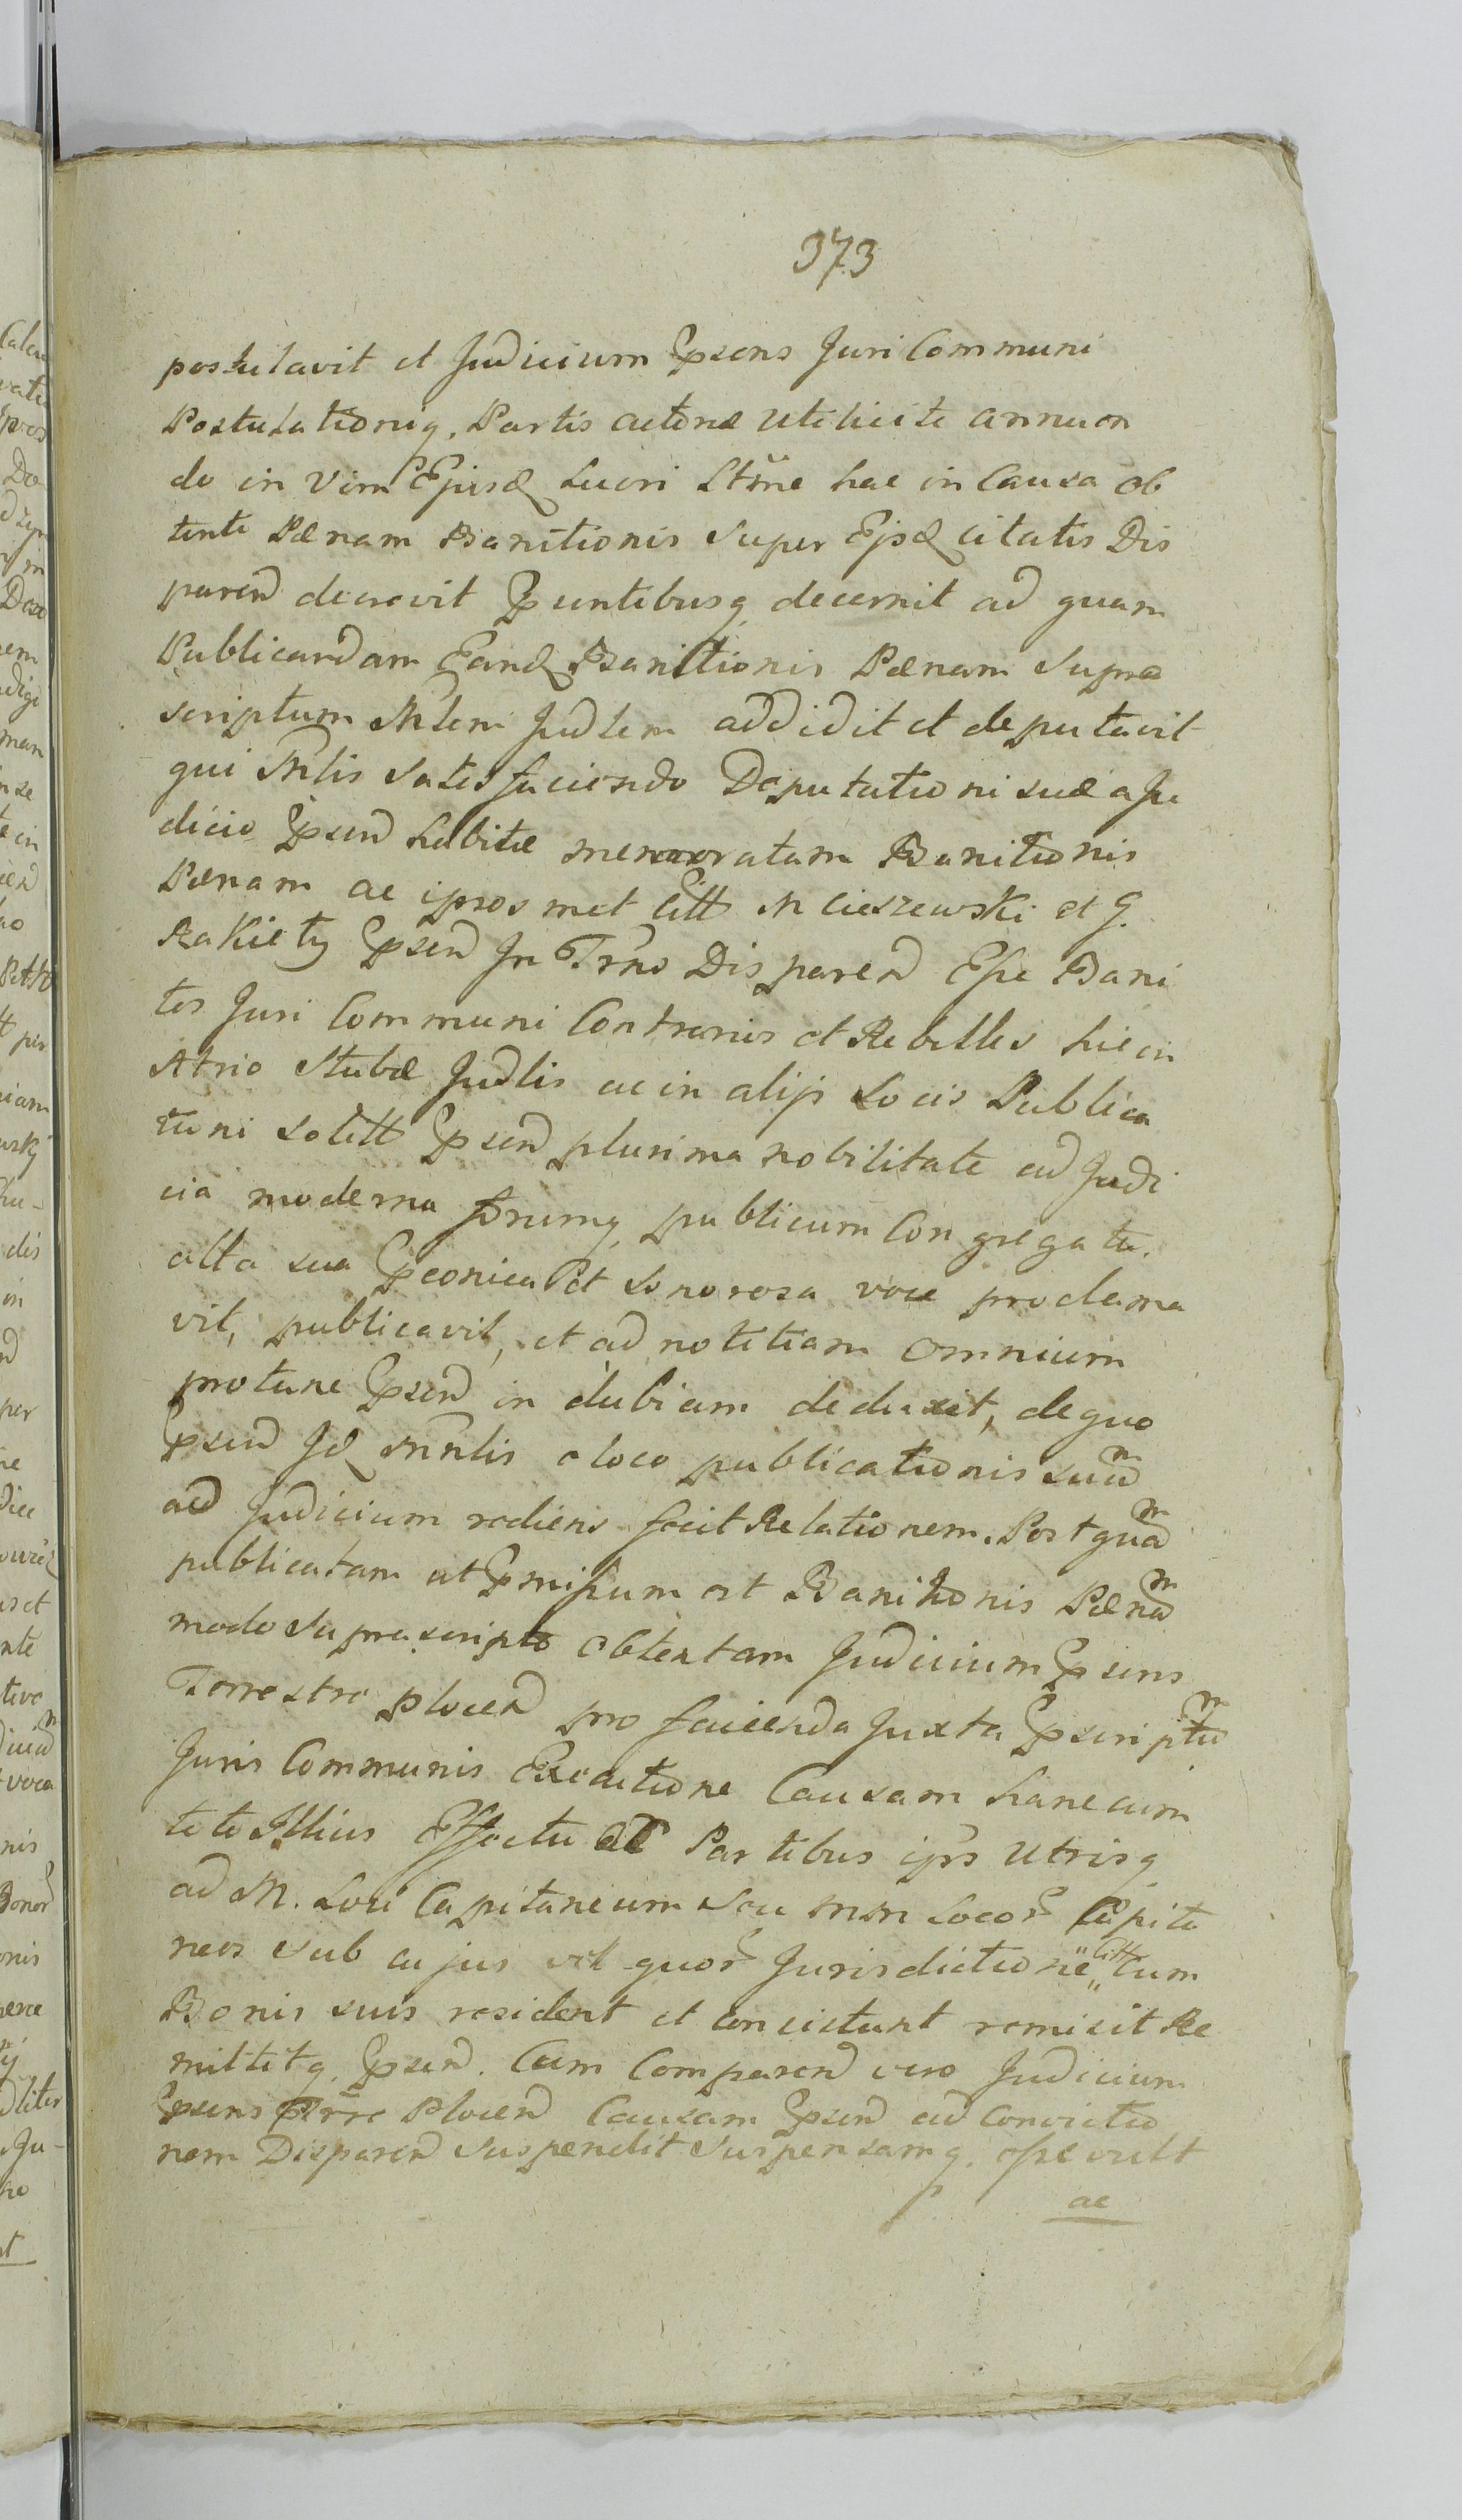 373
postulavit et Judicium Psens Juri Communi
Postulationiq. Partis actoreæ utilicite annuen
do in vim Ejusd Lucri Stñe hac in Causa ob
tente Pænam Banitionis super Ejsd citatis Dis
parend decrevit Psentibusq decernit ad quam
Publicandam Eand Banitionis Pænam supra
scriptum Mlem Judlem addidit et deputavit
qui Mlis satisfaciendo Deputationi suæ a Ju
dicio Psend habitæ memoratam Banitionis
Pænam ac ipsos met Citt M Cieszewski et G.
Rakiety Psend In Trño Disparend Esse Bani
tos Juri Communi Contrarios et Rebelles hic in
Atrio Stubæ Judlis ac in alijs Locis Publica
tioni solitt Psend plurima nobilitate ad Judi
cia moderna forumq publicum Congregata.
alta sua Pconica et sonorosa voce proclama
vit, publicavit, et ad notitiam omnium
protunc Psend in dubiam deduxit, de quo
Psend Id Mnlis a loco publicationis suam
ad Judicium rediens fecit Relationem. Postquam
publicatam ut Pmissum est Banitionis Pænam
modo supra scripto obtentam Judicium Psens
Terrestre Plocend pro facienda Juxta Pscriptum
Juris Communis Executione Causam hanc cum
toto Illius Effectu ac Partibus ips Utrisq
ad M. Loci Capitaneum seu MM Locor Capita
neos sub cujus vel quor Jurisdictione Citt Cum
Bonis suis resident et consistunt remisit Re
mittitq. Psend. Cum Comparend vero Judicium
Psens Trre Plocend Causam Psend ad Convictio
nem Disparend suspendit suspensamq. esse vult
ac